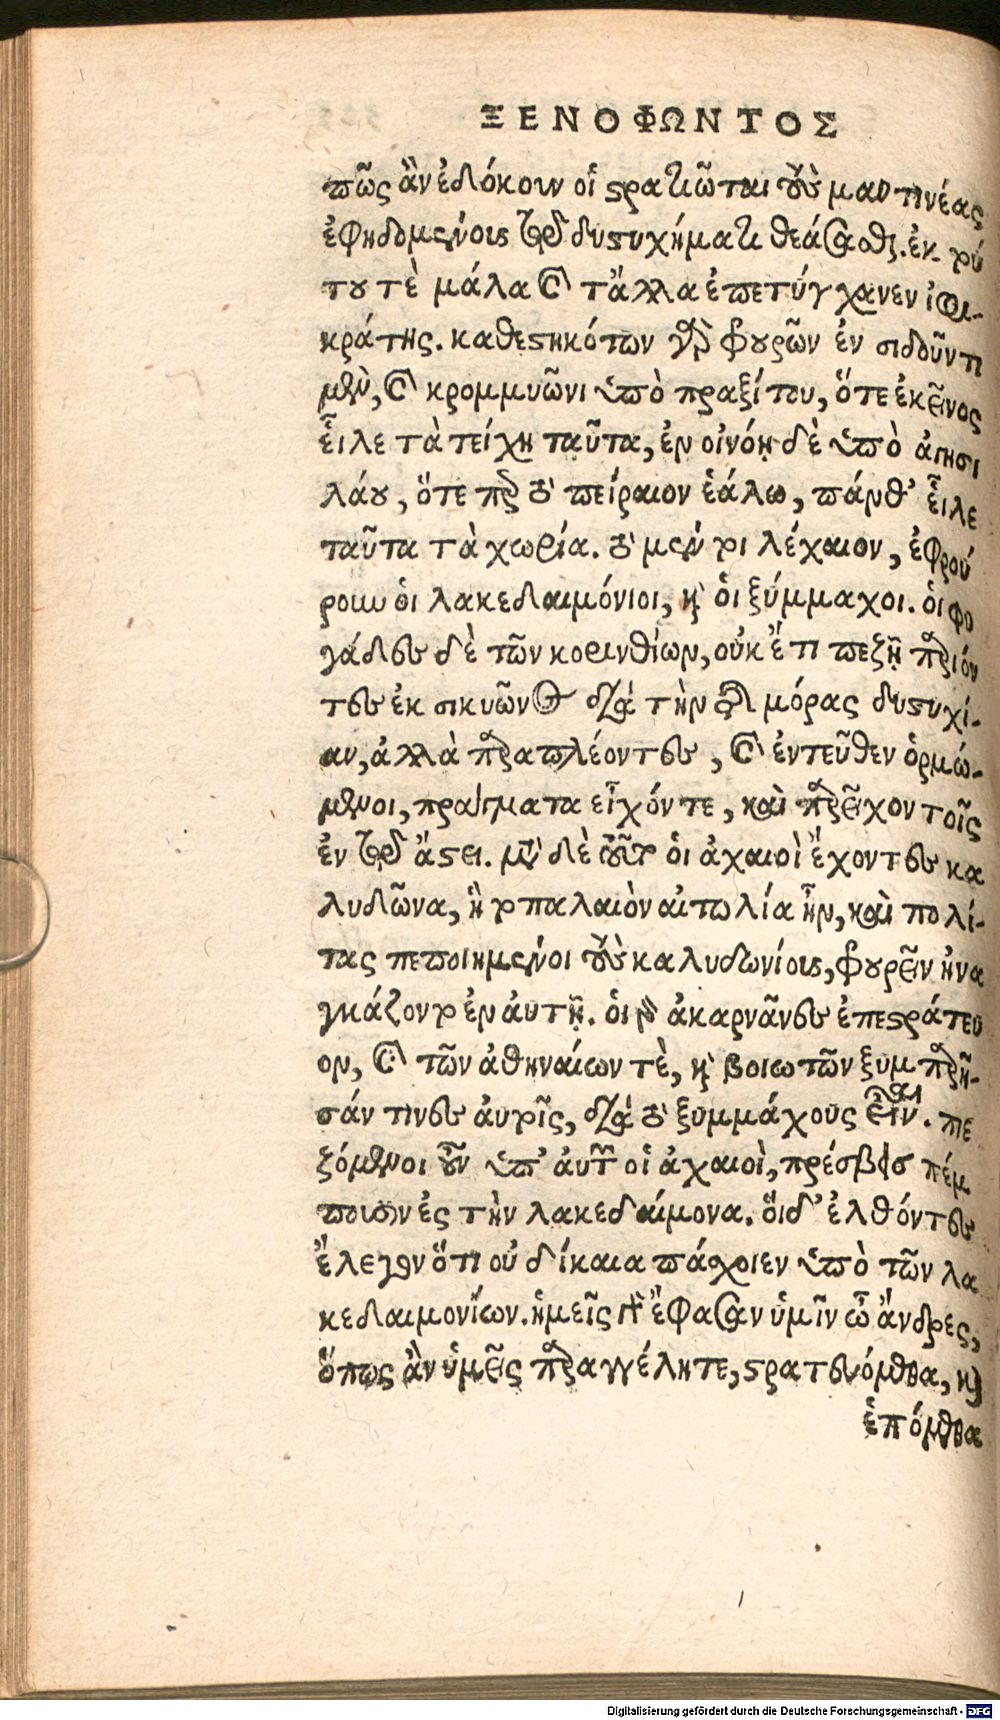 ΞΕΝΟΦΩΝΤΟΣ
πῶς ἂν ἐδόκουν οἱ στρατιῶται τοὺς μαντινέας
ἐφηδομένους τῷ δυστυχήματι θεάσασθαι. ἐκ τού
του τὲ μάλα καὶ τἄλλα ἐπετύγχανεν ἰφι-
κράτης. καθεστηκότων γὰρ φρουρῶν ἐν σιδοῦντι
μὲν, καὶ κρομμυῶνι ὑπὸ πραξίτου, ὅτε ἐκεῖνος
εἷλε τὰ τείχη ταῦτα, ἐν οἰνόῃ δὲ ὑπὸ ἀγησι
λάου, ὅτε περ τὸ πείραιον ἑάλω, πάνθ' εἷλε
ταῦτα τὰ χωρία. τὸ μέντοι λέχαιον, ἐφρού
ρουν οἱ λακεδαιμόνιοι, καὶ οἱ ξύμμαχοι. οἱ φυ
γάδες δὲ τῶν κορινθίων, οὐκ ἔτι πεζῇ παριόν
τες ἐκ σικυῶνος διὰ τὴν τῆς μόρας δυστυχί-
αν, ἀλλὰ παραπλέοντες, καὶ ἐντεῦθεν ὁρμώ-
μενοι, πράγματα εἶχόν τε, καὶ παρεῖχον τοῖς
ἐν τῷ ἄστει. μετὰ δὲ τοῦτο οἱ ἀχαιοὶ ἔχοντες κα
λυδῶνα, ἣ τὸ παλαιὸν αἰτωλία ἦν, καὶ πολί-
τας πεποιημένοι τοὺς καλυδωνίους, φρουρεῖν ἠνα
γκάζοντο ἐν αὐτῇ. οἱ γὰρ ἀκαρνᾶνες ἐπεστράτευ
ον, καὶ τῶν ἀθηναίων τὲ, καὶ βοιωτῶν ξυμπαρῆ-
σάν τινες αὐτοῖς, διὰ τὸ ξυμμάχους εἶναι. πι
εζόμενοι οὖν ὑπ' αὐτῶν οἱ ἀχαιοὶ, πρέσβεις πέμ
πουσιν ἐς τὴν λακεδαίμονα. οἱ δ' ἐλθόντες
ἔλεγον ὅτι οὐ δίκαια πάσχοιεν ὑπὸ τῶν λα
κεδαιμονίων. ἡμεῖς μὲν ἔφασαν ὑμῖν ὦ ἄνδρες,
ὅπως ἂν ὑμεῖς παραγγέλητε, στρατευόμεθα, καὶ
ἑπόμεθα
Digitalisierung gefördert durch die Deutsche Forschungsgemeinschaft - DFG